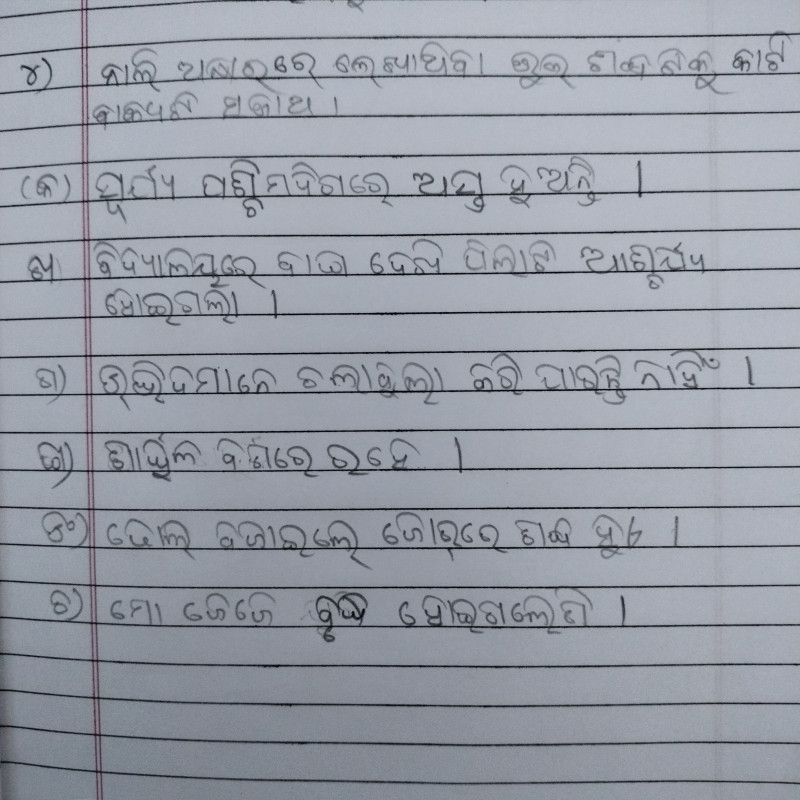 ୪) କାଲି ଅକ୍ଷରରେ ଲେଖାଥିବା ଭୁଲ ଶବ୍ଦଟିକୁ କାଟି
ବାକ୍ୟଟି ସଜାଅ ।
(କ) ସୂର୍ଯ୍ୟ ପଶ୍ଚିମଦିଗରେ ଅସ୍ତ ହୁଅନ୍ତି ।
ଖ) ବିଦ୍ୟାଳୟରେ ବାଘ ଦେଖି ପିଲାଟି ଆଶ୍ଚର୍ଯ୍ୟ
ହୋଇଗଲା ।
ଗ) ଉଦ୍ଭିଦମାନେ ଚଲାବୁଲା କରି ପାରନ୍ତି ନାହିଁ ।
ଘ) ଶାର୍ଦ୍ଦୁଳ ବଣରେ ରହେ ।
ଙ) ଢୋଲ ବଜାଇଲେ ଜୋର୍‌ରେ ଶବ୍ଦ ହୁଏ ।
ଚ) ମୋ ଜେଜେ ବୃଦ୍ଧ ହୋଇଗଲେଣି ।